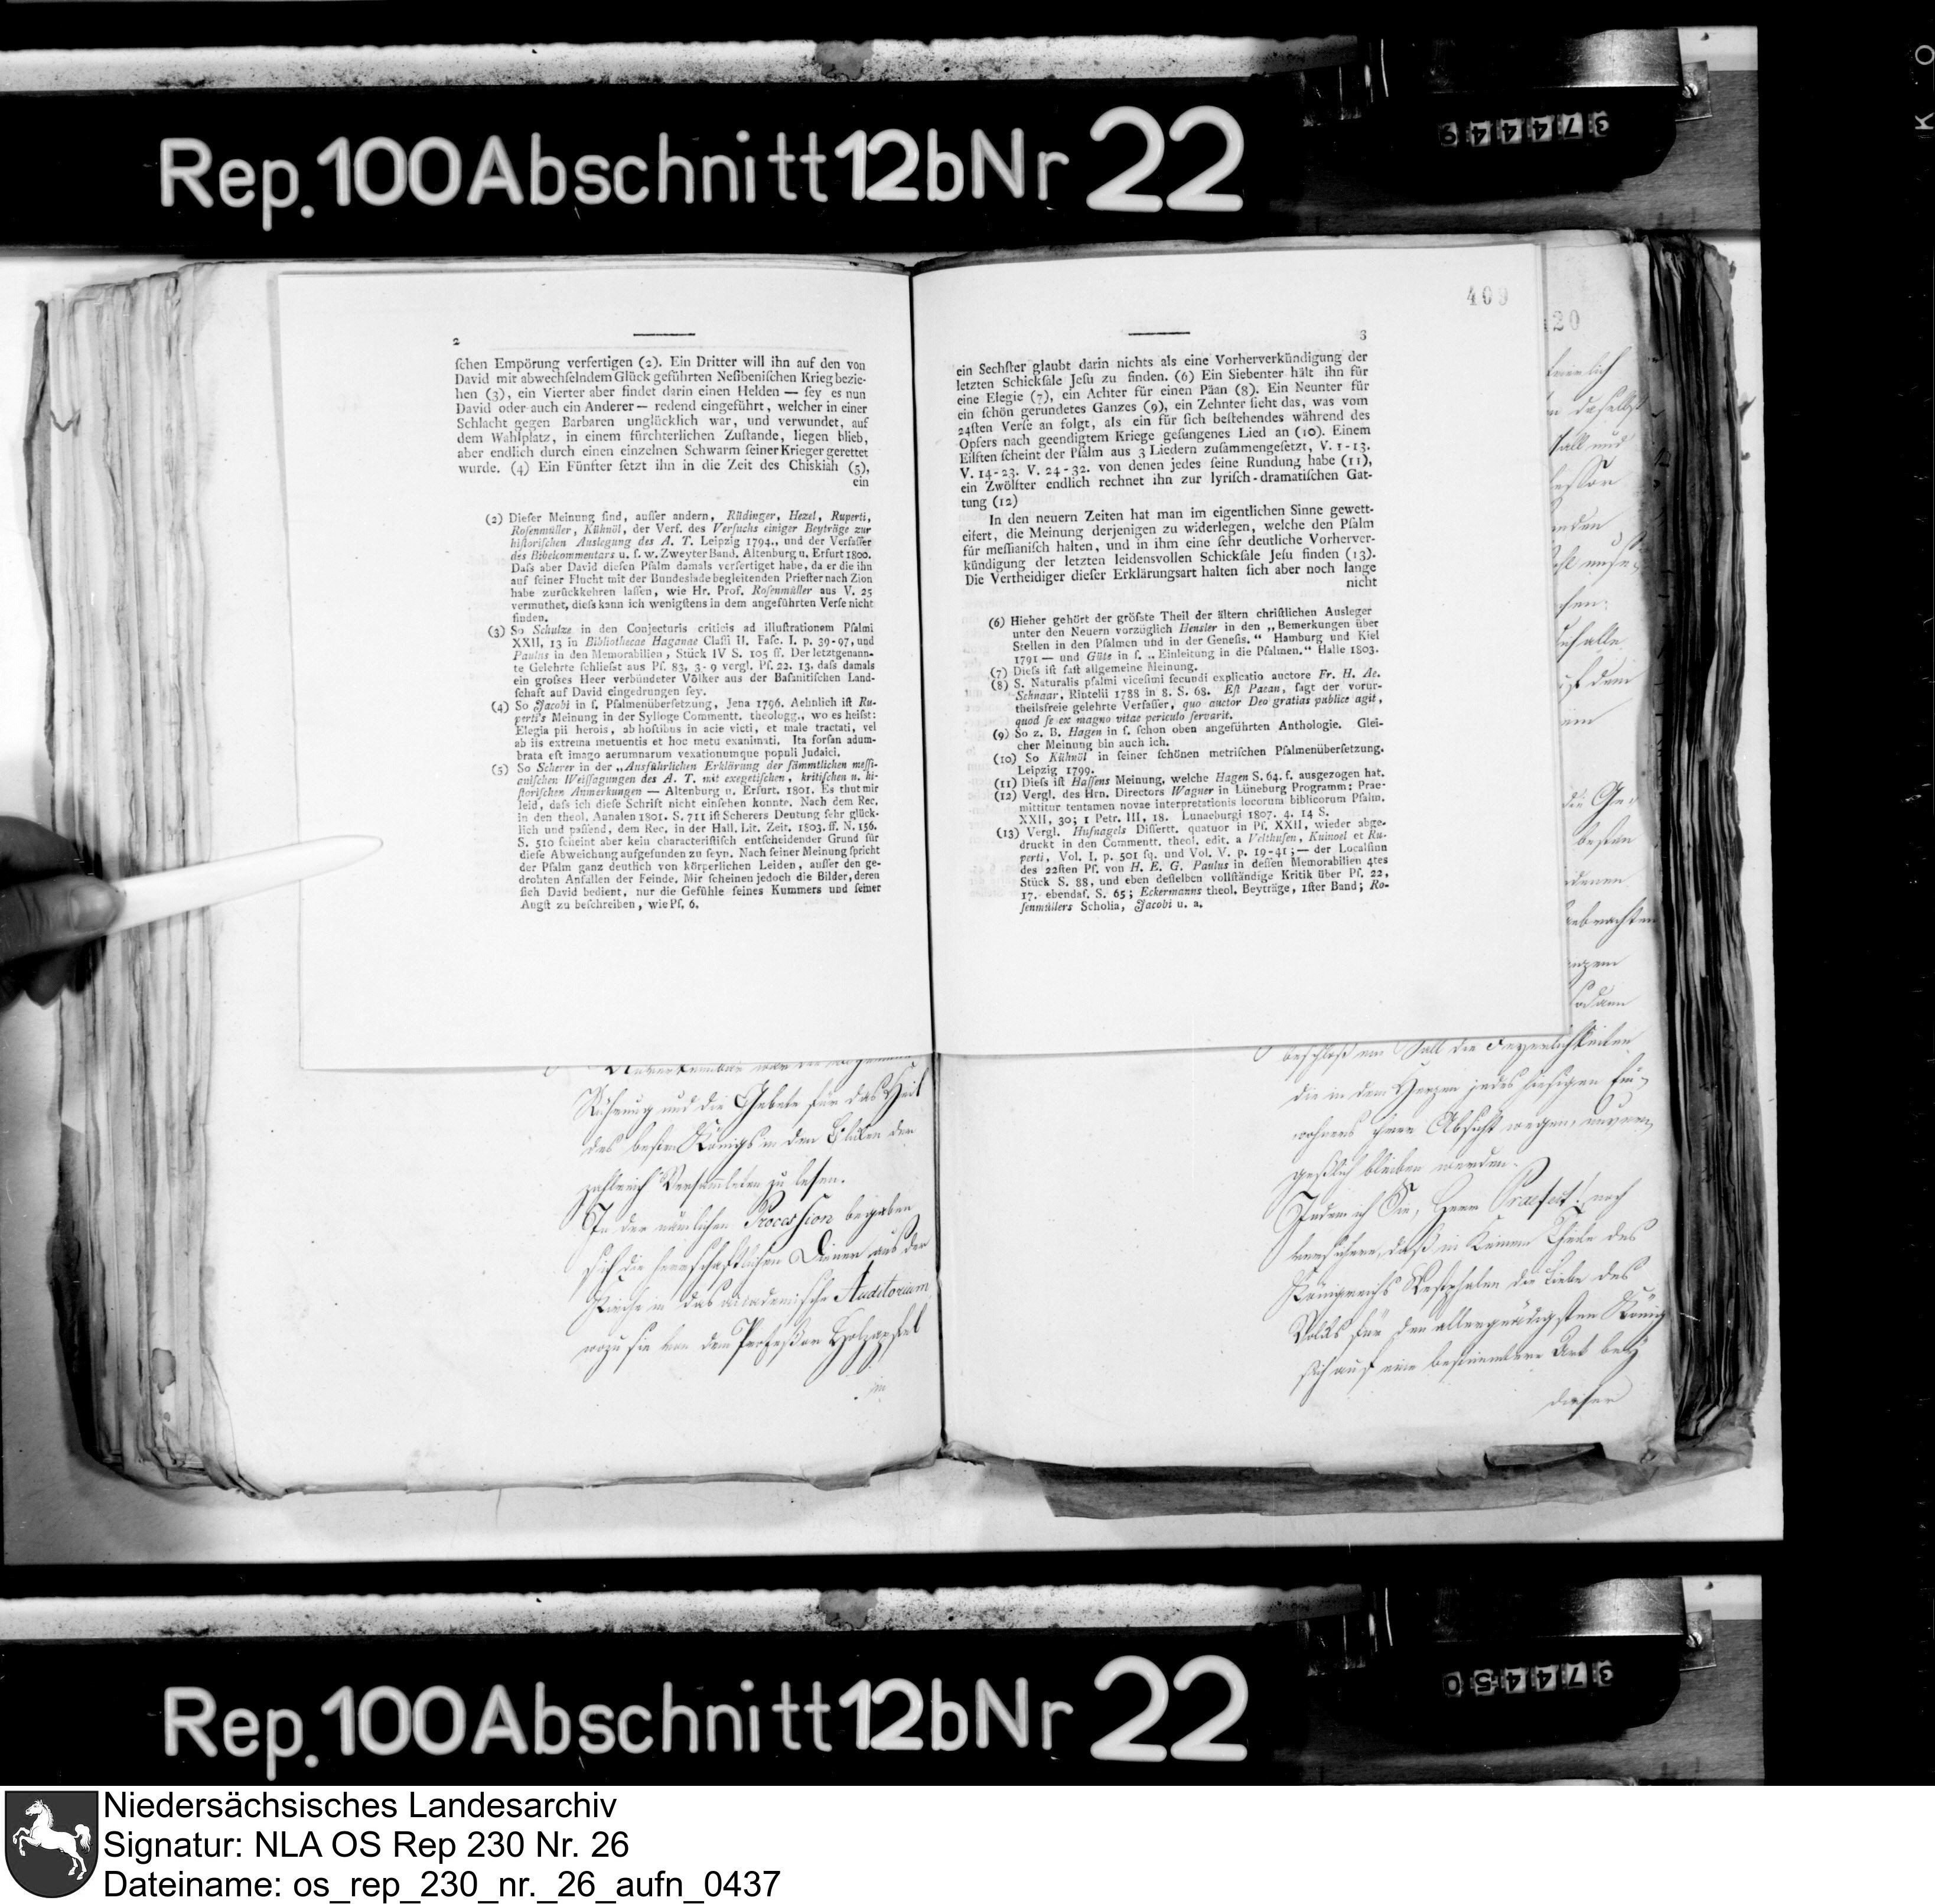 Rep.100Abschnitt12bNr 22
374449
2
ſchen Empörung verfertigen (2). Ein Dritter will ihn auf den von
David mit abwechſelndem Glück geführten Neſibeniſchen Krieg bezie-
hen (3), ein Vierter aber findet darin einen Helden — ſey es nun
David oder auch ein Anderer — redend eingeführt, welcher in einer
Schlacht gegen Barbaren unglücklich war, und verwundet, auf
dem Wahlplatz, in einem fürchterlichen Zuſtande, liegen blieb,
aber endlich durch einen einzelnen Schwarm ſeiner Krieger gerettet
wurde. (4) Ein Fünfter ſetzt ihn in die Zeit des Chiskiah (5),
ein
(2) Dieſer Meinung ſind, auſſer andern, Rüdinger, Hezel, Ruperti,
Roſenmüller, Kühnöl, der Verf. des Verſuchs einiger Beyträge zur
hiſtoriſchen Auslegung des A. T. Leipzig 1794., und der Verfaſſer
des Bibelcommentars u. ſ. w. Zweyter Band. Altenburg u. Erfurt 1800.
Daſs aber David dieſen Pſalm damals verfertiget habe, da er die ihn
auf ſeiner Flucht mit der Bundeslade begleitenden Prieſter nach Zion
habe zurückkehren laſſen, wie Hr. Prof. Roſenmüller aus V. 25
vermuthet, dieſs kann ich wenigſtens in dem angeführten Verſe nicht
finden.
(3) So Schulze in den Conjecturis criticis ad illuſtrationem Pſalmi
XXII, 13 in Bibliothecae Haganae Claſſi II. Faſc. I. p. 39-97, und
Paulus in den Memorabilien, Stück IV S. 105 ff. Der letztgenann-
te Gelehrte ſchlieſst aus Pſ. 83, 3-9 vergl. Pſ. 22. 13. daſs damals
ein groſses Heer verbündeter Völker aus der Baſanitiſchen Land-
ſchaft auf David eingedrungen ſey.
(4) So Jacobi in ſ. Pſalmenüberſetzung, Jena 1796. Aehnlich iſt Ru-
perti's Meinung in der Sylloge Commentt. theologg., wo es heiſst:
Elegia pii herois, ab hoſtibus in acie victi, et male tractati, vel
ab iis extrema metuentis et hoc metu exanimati. Ita forſan adum-
brata eſt imago aerumnarum vexationumque populi Judaici.
(5) So Scherer in der „Ausführlichen Erklärung der ſämmtlichen meſſi-
aniſchen Weiſſagungen des A. T. mit exegetiſchen, kritiſchen u. hi-
ſtoriſchen Anmerkungen — Altenburg u. Erfurt. 1801. Es thut mir
leid, daſs ich dieſe Schrift nicht einſehen konnte. Nach dem Rec.
in den theol. Annalen 1801. S. 711 iſt Scherers Deutung ſehr glück-
lich und paſſend, dem Rec. in der Hall. Lit. Zeit. 1803. ff. N. 156.
S. 510 ſcheint aber kein characteriſtiſch entſcheidender Grund für
dieſe Abweichung aufgefunden zu ſeyn. Nach ſeiner Meinung ſpricht
der Pſalm ganz deutlich von körperlichen Leiden, auſſer den ge-
drohten Anfällen der Feinde. Mir ſcheinen jedoch die Bilder, deren
ſich David bedient, nur die Gefühle ſeines Kummers und ſeiner
Angſt zu beſchreiben, wie Pſ. 6.
Rührung und die Gebete für das Heil
des besten Königs in den Blicken der
zahlreich Versammleten zu lesen.
In der nämlichen Procession begaben
sich die herrschaftlichen Diener aus der
Kirche in das academische Auditorium
wozu sie von dem Professor Holzapfel
im
409
3
ein Sechſter glaubt darin nichts als eine Vorherverkündigung der
letzten Schickſale Jeſu zu finden. (6) Ein Siebenter hält ihn für
eine Elegie (7), ein Achter für einen Päan (8). Ein Neunter für
ein ſchön gerundetes Ganzes (9), ein Zehnter ſieht das, was vom
24ſten Verſe an folgt, als ein für ſich beſtehendes während des
Opfers nach geendigtem Kriege geſungenes Lied an (10). Einem
Eilften ſcheint der Pſalm aus 3 Liedern zuſammengeſetzt, V. 1-13.
V. 14-23. V. 24-32. von denen jedes ſeine Rundung habe (11),
ein Zwölfter endlich rechnet ihn zur lyriſch-dramatiſchen Gat-
tung (12)
In den neuern Zeiten hat man im eigentlichen Sinne gewett-
eifert, die Meinung derjenigen zu widerlegen, welche den Pſalm
für meſſianiſch halten, und in ihm eine ſehr deutliche Vorherver-
kündigung der letzten leidensvollen Schickſale Jeſu finden (13).
Die Vertheidiger dieſer Erklärungsart halten ſich aber noch lange
nicht
(6) Hieher gehört der gröſste Theil der ältern chriſtlichen Ausleger
unter den Neuern vorzüglich Hensler in den „Bemerkungen über
Stellen in den Pſalmen und in der Geneſis.“ Hamburg und Kiel
1791 — und Güte in ſ. „Einleitung in die Pſalmen.“ Halle 1803.
(7) Dieſs iſt faſt allgemeine Meinung.
(8) S. Naturalis pſalmi viceſimi ſecundi explicatio auctore Fr. H. Ae.
Schnaar, Rintelii 1788 in 8. S. 68. Eſt Paean, ſagt der vorur-
theilsfreie gelehrte Verfaſſer, quo auctor Deo gratias publice agit,
quod ſe ex magno vitae periculo ſervarit.
(9) So z. B. Hagen in ſ. ſchon oben angeführten Anthologie. Glei-
cher Meinung bin auch ich.
(10) So Kühnöl in ſeiner ſchönen metriſchen Pſalmenüberſetzung.
Leipzig 1799.
(11) Dieſs iſt Haſſens Meinung, welche Hagen S. 64. f. ausgezogen hat.
(12) Vergl. des Hrn. Directors Wagner in Lüneburg Programm: Prae-
mittitur tentamen novae interpretationis locorum biblicorum Pſalm.
XXII, 30; 1 Petr. III, 18. Lunaeburgi 1807. 4. 14 S.
(13) Vergl. Hufnagels Diſſertt. quatuor in Pſ. XXII, wieder abge-
druckt in den Commentt. theol. edit. a Velthuſen, Kuinoel et Ru-
perti, Vol. I. p. 501 ſq. und Vol. V. p. 19-41; — der Localſinn
des 22ſten Pſ. von H. E. G. Paulus in deſſen Memorabilien 4tes
Stück S. 88, und eben deſſelben vollſtändige Kritik über Pſ. 22,
17. ebendaſ. S. 65; Eckermanns theol. Beyträge, 1ſter Band; Ro-
ſenmüllers Scholia, Jacobi u. a.
20
beschloß ein Ball die Feyerlichkeiten
die in dem Herzen jedes hiesigen Ein-
wohners ihrer Absicht wegen, unver-
geßlich bleiben werden.
Indem ich Sie, Herr Praefect! noch
versichere, daß in keinem Theile des
Königreichs Westphalen die Liebe des
Volks für den allergnädigsten König
sich auf eine bestimmtere Art bey
dieser
Rep.100Abschnitt12bNr 22
374450
Niedersächsisches Landesarchiv
Signatur: NLA OS Rep 230 Nr. 26
Dateiname: os_rep_230_nr._26_aufn_0437